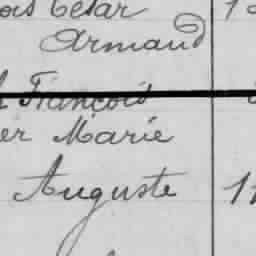 ois César 1
Armand
François
er Marie
Auguste 11